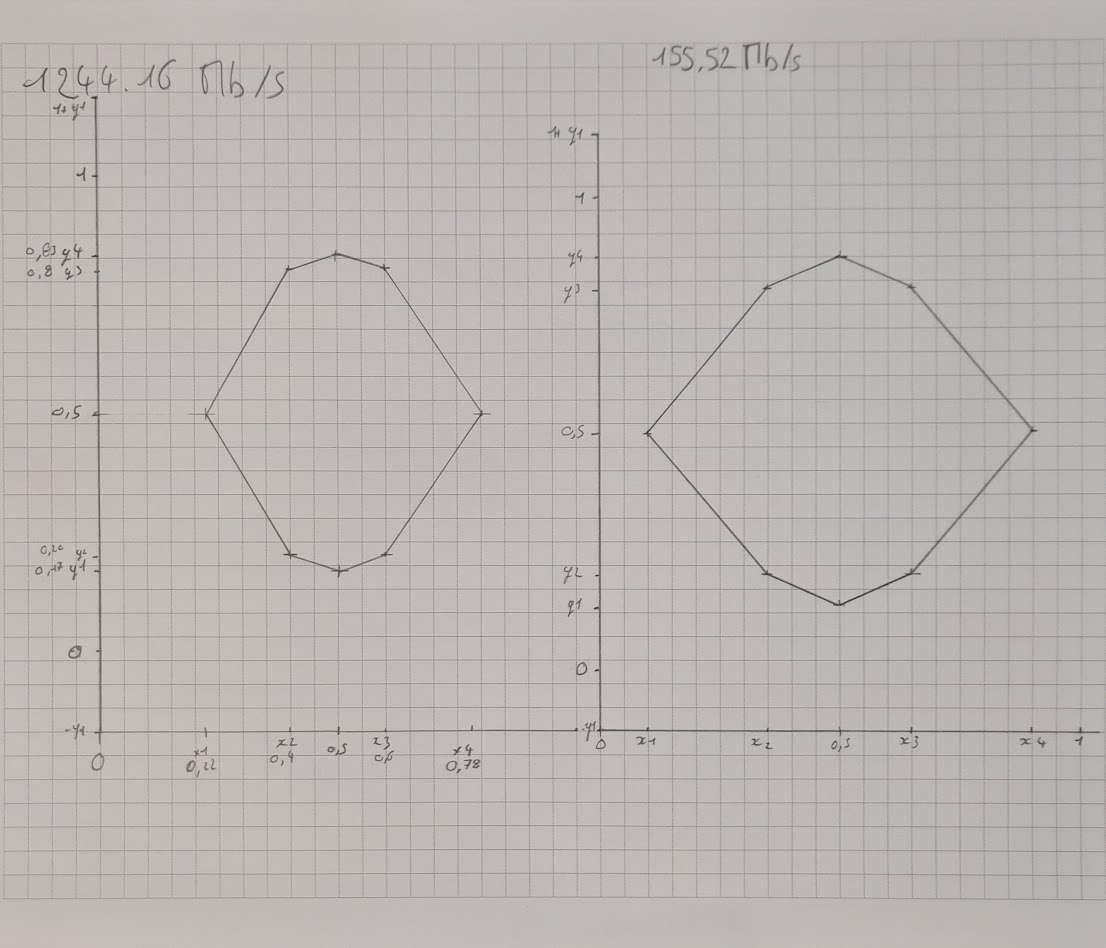 1244.16 Mb/s
1+y1
1
0,83 y4
0,8 y3
0,5
0,20 y2
0,17 y1
0
-y1
0
x1
0,22
x2
0,4
0,5
x3
0,6
x4
0,78
155,52 Mb/s
1+ y1
1
y4
y3
0,5
y2
y1
0
-y1
0 x1 x2 0,5 x3 x4 1